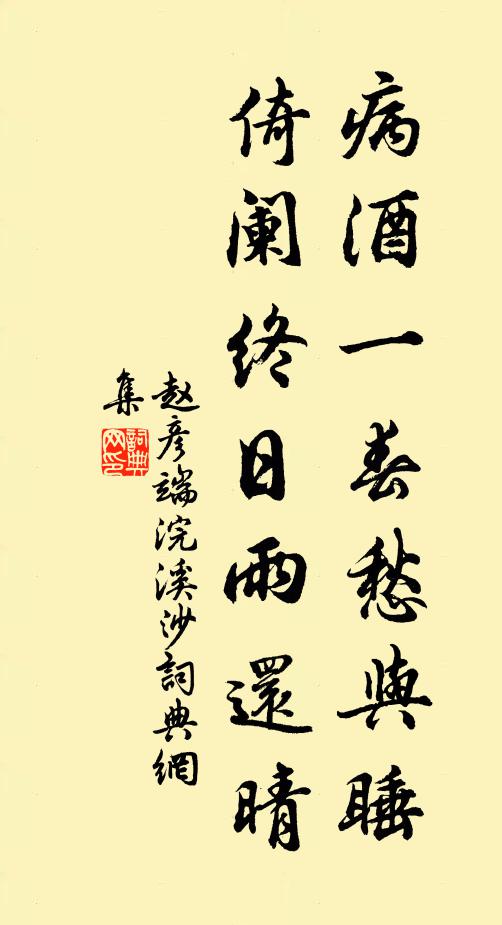 病酒一春愁與睡
倚阑终日雨還晴
赵彦端浣溪沙詞典網
集
詞典
网印